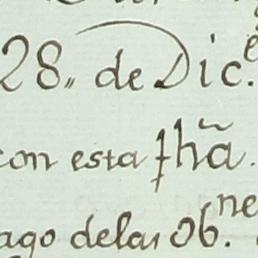 28,, de Dic.e
con esta fhã.
ago delas 0b.ne